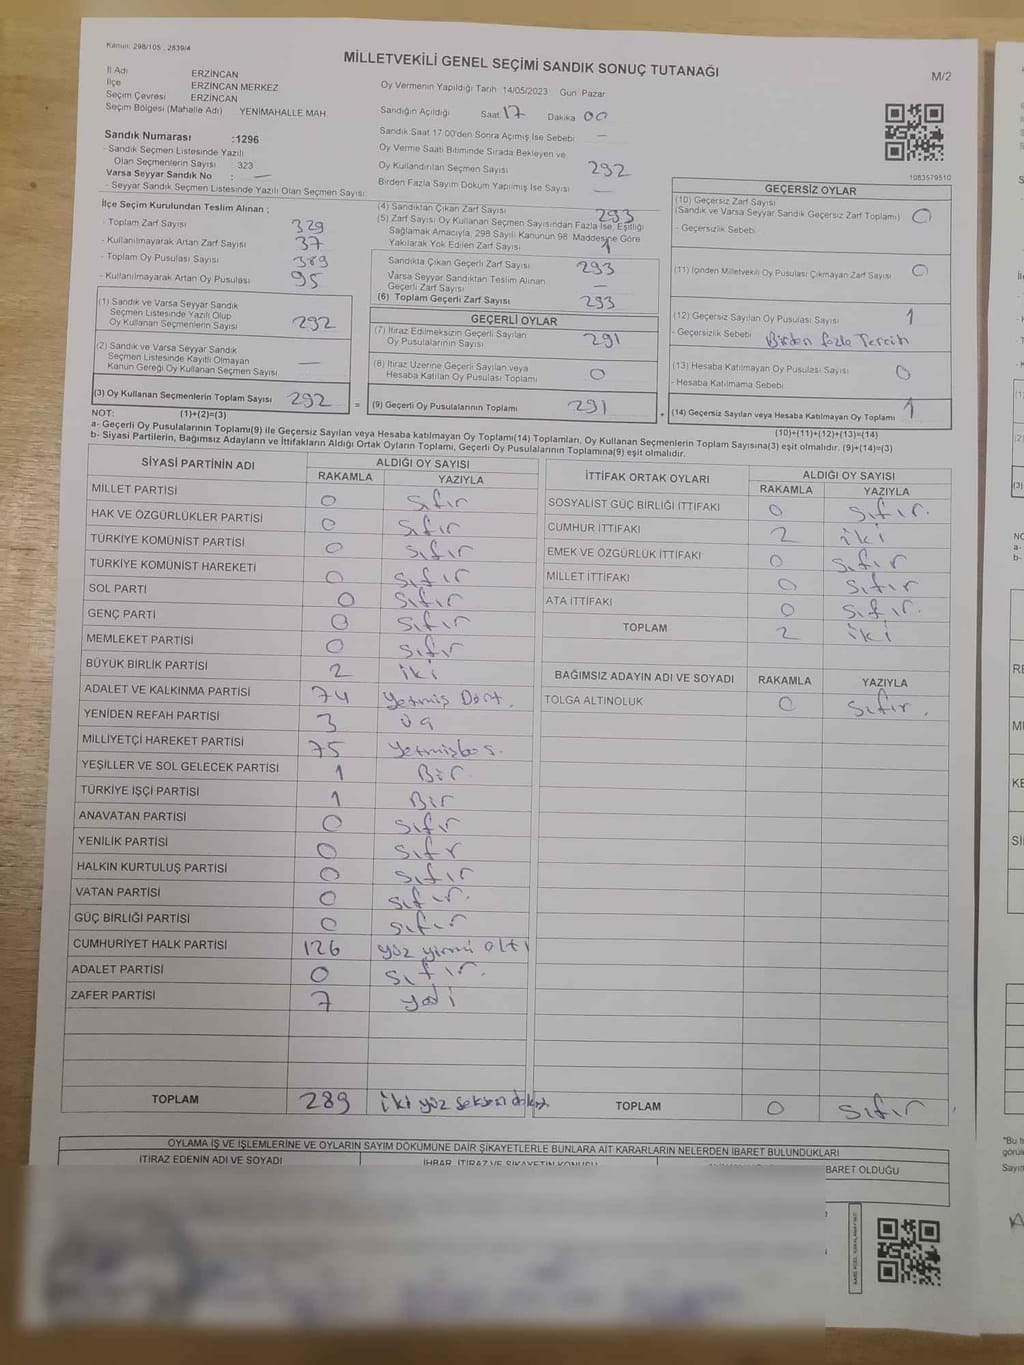 Kanun: 298/105 , 2839/4
MİLLETVEKİLİ GENEL SEÇİMİ SANDIK SONUÇ TUTANAĞI
M/2
İl Adı ERZİNCAN
İlçe ERZİNCAN MERKEZ
Seçim Çevresi ERZİNCAN
Seçim Bölgesi (Mahalle Adı) YENİMAHALLE MAH
Oy Vermenin Yapıldığı Tarih 14/05/2023 Gün Pazar
Sandığın Açıldığı Saat 17 Dakika 00
Sandık Saat 17:00'den Sonra Açılmış İse Sebebi —
Oy Verme Saati Bitiminde Sırada Bekleyen ve
Oy Kullandırılan Seçmen Sayısı 292
Birden Fazla Sayım Döküm Yapılmış İse Sayısı —
Sandık Numarası :1296
- Sandık Seçmen Listesinde Yazılı
Olan Seçmenlerin Sayısı 323
Varsa Seyyar Sandık No : —
- Seyyar Sandık Seçmen Listesinde Yazılı Olan Seçmen Sayısı
İlçe Seçim Kurulundan Teslim Alınan ;
- Toplam Zarf Sayısı 329
- Kullanılmayarak Artan Zarf Sayısı 37
- Toplam Oy Pusulası Sayısı 389
- Kullanılmayarak Artan Oy Pusulası 95
(1) Sandık ve Varsa Seyyar Sandık
Seçmen Listesinde Yazılı Olup
Oy Kullanan Seçmenlerin Sayısı 292
(2) Sandık ve Varsa Seyyar Sandık
Seçmen Listesinde Kayıtlı Olmayan
Kanun Gereği Oy Kullanan Seçmen Sayısı —
(3) Oy Kullanan Seçmenlerin Toplam Sayısı 292
(4) Sandıktan Çıkan Zarf Sayısı 293
(5) Zarf Sayısı Oy Kullanan Seçmen Sayısından Fazla İse, Eşitliği
Sağlamak Amacıyla, 298 Sayılı Kanunun 98. Maddesine Göre
Yakılarak Yok Edilen Zarf Sayısı 1
Sandıkta Çıkan Geçerli Zarf Sayısı 293
Varsa Seyyar Sandıktan Teslim Alınan
Geçerli Zarf Sayısı —
(6) Toplam Geçerli Zarf Sayısı 293
GEÇERLİ OYLAR
(7) İtiraz Edilmeksizin Geçerli Sayılan
Oy Pusulalarının Sayısı 291
(8) İtiraz Üzerine Geçerli Sayılan veya
Hesaba Katılan Oy Pusulası Toplamı 0
= (9) Geçerli Oy Pusulalarının Toplamı 291
1083579510
GEÇERSİZ OYLAR
(10) Geçersiz Zarf Sayısı
(Sandık ve Varsa Seyyar Sandık Geçersiz Zarf Toplamı) 0
- Geçersizlik Sebebi
(11) İçinden Milletvekili Oy Pusulası Çıkmayan Zarf Sayısı 0
(12) Geçersiz Sayılan Oy Pusulası Sayısı 1
- Geçersizlik Sebebi Birden fazla Tercih
(13) Hesaba Katılmayan Oy Pusulası Sayısı 0
- Hesaba Katılmama Sebebi
+ (14) Geçersiz Sayılan veya Hesaba Katılmayan Oy Toplamı 1
NOT: (1)+(2)=(3)
(10)+(11)+(12)+(13)=(14)
a- Geçerli Oy Pusulalarının Toplamı(9) ile Geçersiz Sayılan veya Hesaba katılmayan Oy Toplamı(14) Toplamları, Oy Kullanan Seçmenlerin Toplam Sayısına(3) eşit olmalıdır. (9)+(14)=(3)
b- Siyasi Partilerin, Bağımsız Adayların ve İttifakların Aldığı Ortak Oyların Toplamı, Geçerli Oy Pusulalarının Toplamına(9) eşit olmalıdır.
SİYASİ PARTİNİN ADI ALDIĞI OY SAYISI
RAKAMLA YAZIYLA
MİLLET PARTİSİ 0 Sıfır
HAK VE ÖZGÜRLÜKLER PARTİSİ 0 Sıfır
TÜRKİYE KOMÜNİST PARTİSİ 0 Sıfır
TÜRKİYE KOMÜNİST HAREKETİ 0 Sıfır
SOL PARTİ 0 Sıfır
GENÇ PARTİ 0 Sıfır
MEMLEKET PARTİSİ 0 Sıfır
BÜYÜK BİRLİK PARTİSİ 2 iki
ADALET VE KALKINMA PARTİSİ 74 Yetmiş Dört.
YENİDEN REFAH PARTİSİ 3 üç
MİLLİYETÇİ HAREKET PARTİSİ 75 Yetmişbeş.
YEŞİLLER VE SOL GELECEK PARTİSİ 1 Bir
TÜRKİYE İŞÇİ PARTİSİ 1 Bir
ANAVATAN PARTİSİ 0 Sıfır
YENİLİK PARTİSİ 0 Sıfır
HALKIN KURTULUŞ PARTİSİ 0 Sıfır
VATAN PARTİSİ 0 Sıfır.
GÜÇ BİRLİĞİ PARTİSİ 0 Sıfır
CUMHURİYET HALK PARTİSİ 126 yüz yirmi altı
ADALET PARTİSİ 0 Sıfır.
ZAFER PARTİSİ 7 yedi
TOPLAM 289 iki yüz seksen dokuz
İTTİFAK ORTAK OYLARI ALDIĞI OY SAYISI
RAKAMLA YAZIYLA
SOSYALİST GÜÇ BİRLİĞİ İTTİFAKI 0 Sıfır.
CUMHUR İTTİFAKI 2 iki
EMEK VE ÖZGÜRLÜK İTTİFAKI 0 Sıfır
MİLLET İTTİFAKI 0 Sıfır
ATA İTTİFAKI 0 Sıfır.
TOPLAM 2 iki
BAĞIMSIZ ADAYIN ADI VE SOYADI RAKAMLA YAZIYLA
TOLGA ALTINOLUK 0 Sıfır.
TOPLAM 0 Sıfır
OYLAMA İŞ VE İŞLEMLERİNE VE OYLARIN SAYIM DÖKÜMÜNE DAİR ŞİKAYETLERLE BUNLARA AİT KARARLARIN NELERDEN İBARET BULUNDUKLARI
İTİRAZ EDENİN ADI VE SOYADI
İHBAR, İTİRAZ VE ŞİKAYETİN KONUSU
BARET OLDUĞU